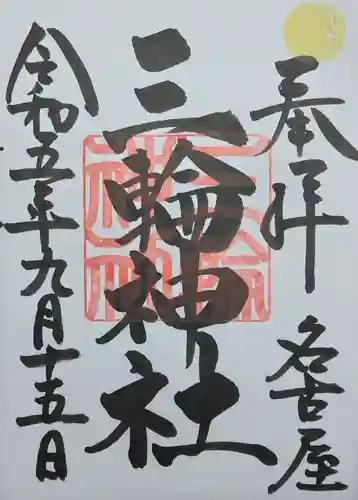 奉拝
名古屋
三輪神社
令和五年九月十五日